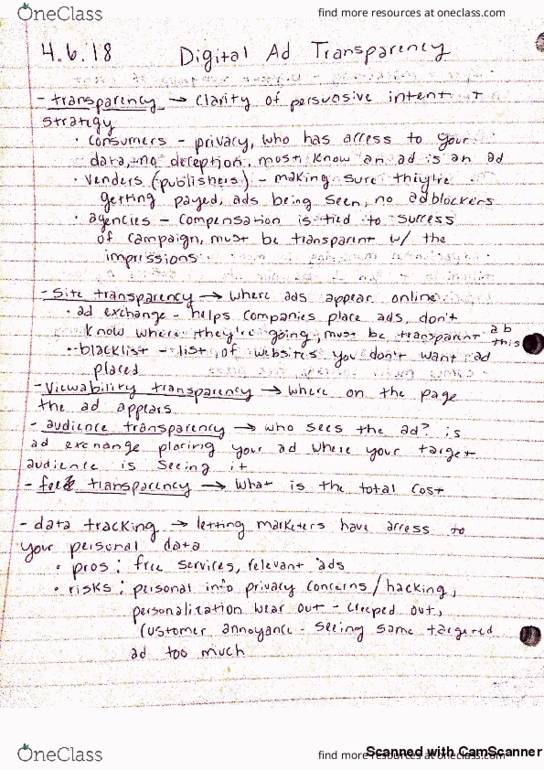 OneClass
find more resources at oneclass.com
4.6.18 Digital Ad Transparency
- transparency → clarity of persuasive intent +
strategy
• consumers - privacy, who has access to your
data, no deception, must know an ad is an ad
• venders (publishers) - making sure they're
getting payed, ads being seen, no adblockers
• agencies - compensation is tied to success
of campaign, must be transparent w/ the
impressions
- Site transparency → where ads appear online
• ad exchange - helps companies place ads, don't
know where they're going, must be transparent ab
this
• blacklist - list of websites you don't want ad
placed
- Viewability transparency → where on the page
the ad appears
- audience transparency → who sees the ad? is
ad exchange placing your ad where your target
audience is seeing it
- fee transparency → what is the total cost
- data tracking → letting marketers have access to
your personal data
• pros: free services, relevant ads
• risks: personal info privacy concerns/hacking,
personalization wear out - creeped out,
customer annoyance - seeing same targeted
ad too much
Scanned with CamScanner
OneClass
find more resources at oneclass.com